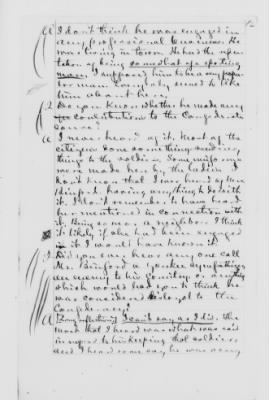 A I don't think he was engaged in
any professional business. He
was living in town. He had the repu-
tation of being somewhat of a sporting
man. I supposed him to be a very popu-
lar man. Everybody seemed to like
him about here.
Q Do you know whether he made any
contributions to the Confederate
cause?
A I never heard of it. Most of the
citizens done something sending
things to the soldiers. Some uniforms
were made here by the ladies. I
don't know that I ever heard of Mrs
Binford having anything to do with
it. I don't remember to have heard
her mentioned in connection with
it. Being so near a neighbor I think
it likely if she had been engaged
in it I would have known it.
Q Did you ever hear any one call
Mr. Binford a Yankee sympathizer,
an enemy to his country, or anything
which would lead you to think he
was considered disloyal to the
Confederacy?
A [Being reflecting] I can't say as I did. The
most that I heard was what was said
in regard to his keeping that soldier,
and I heard some say he was very